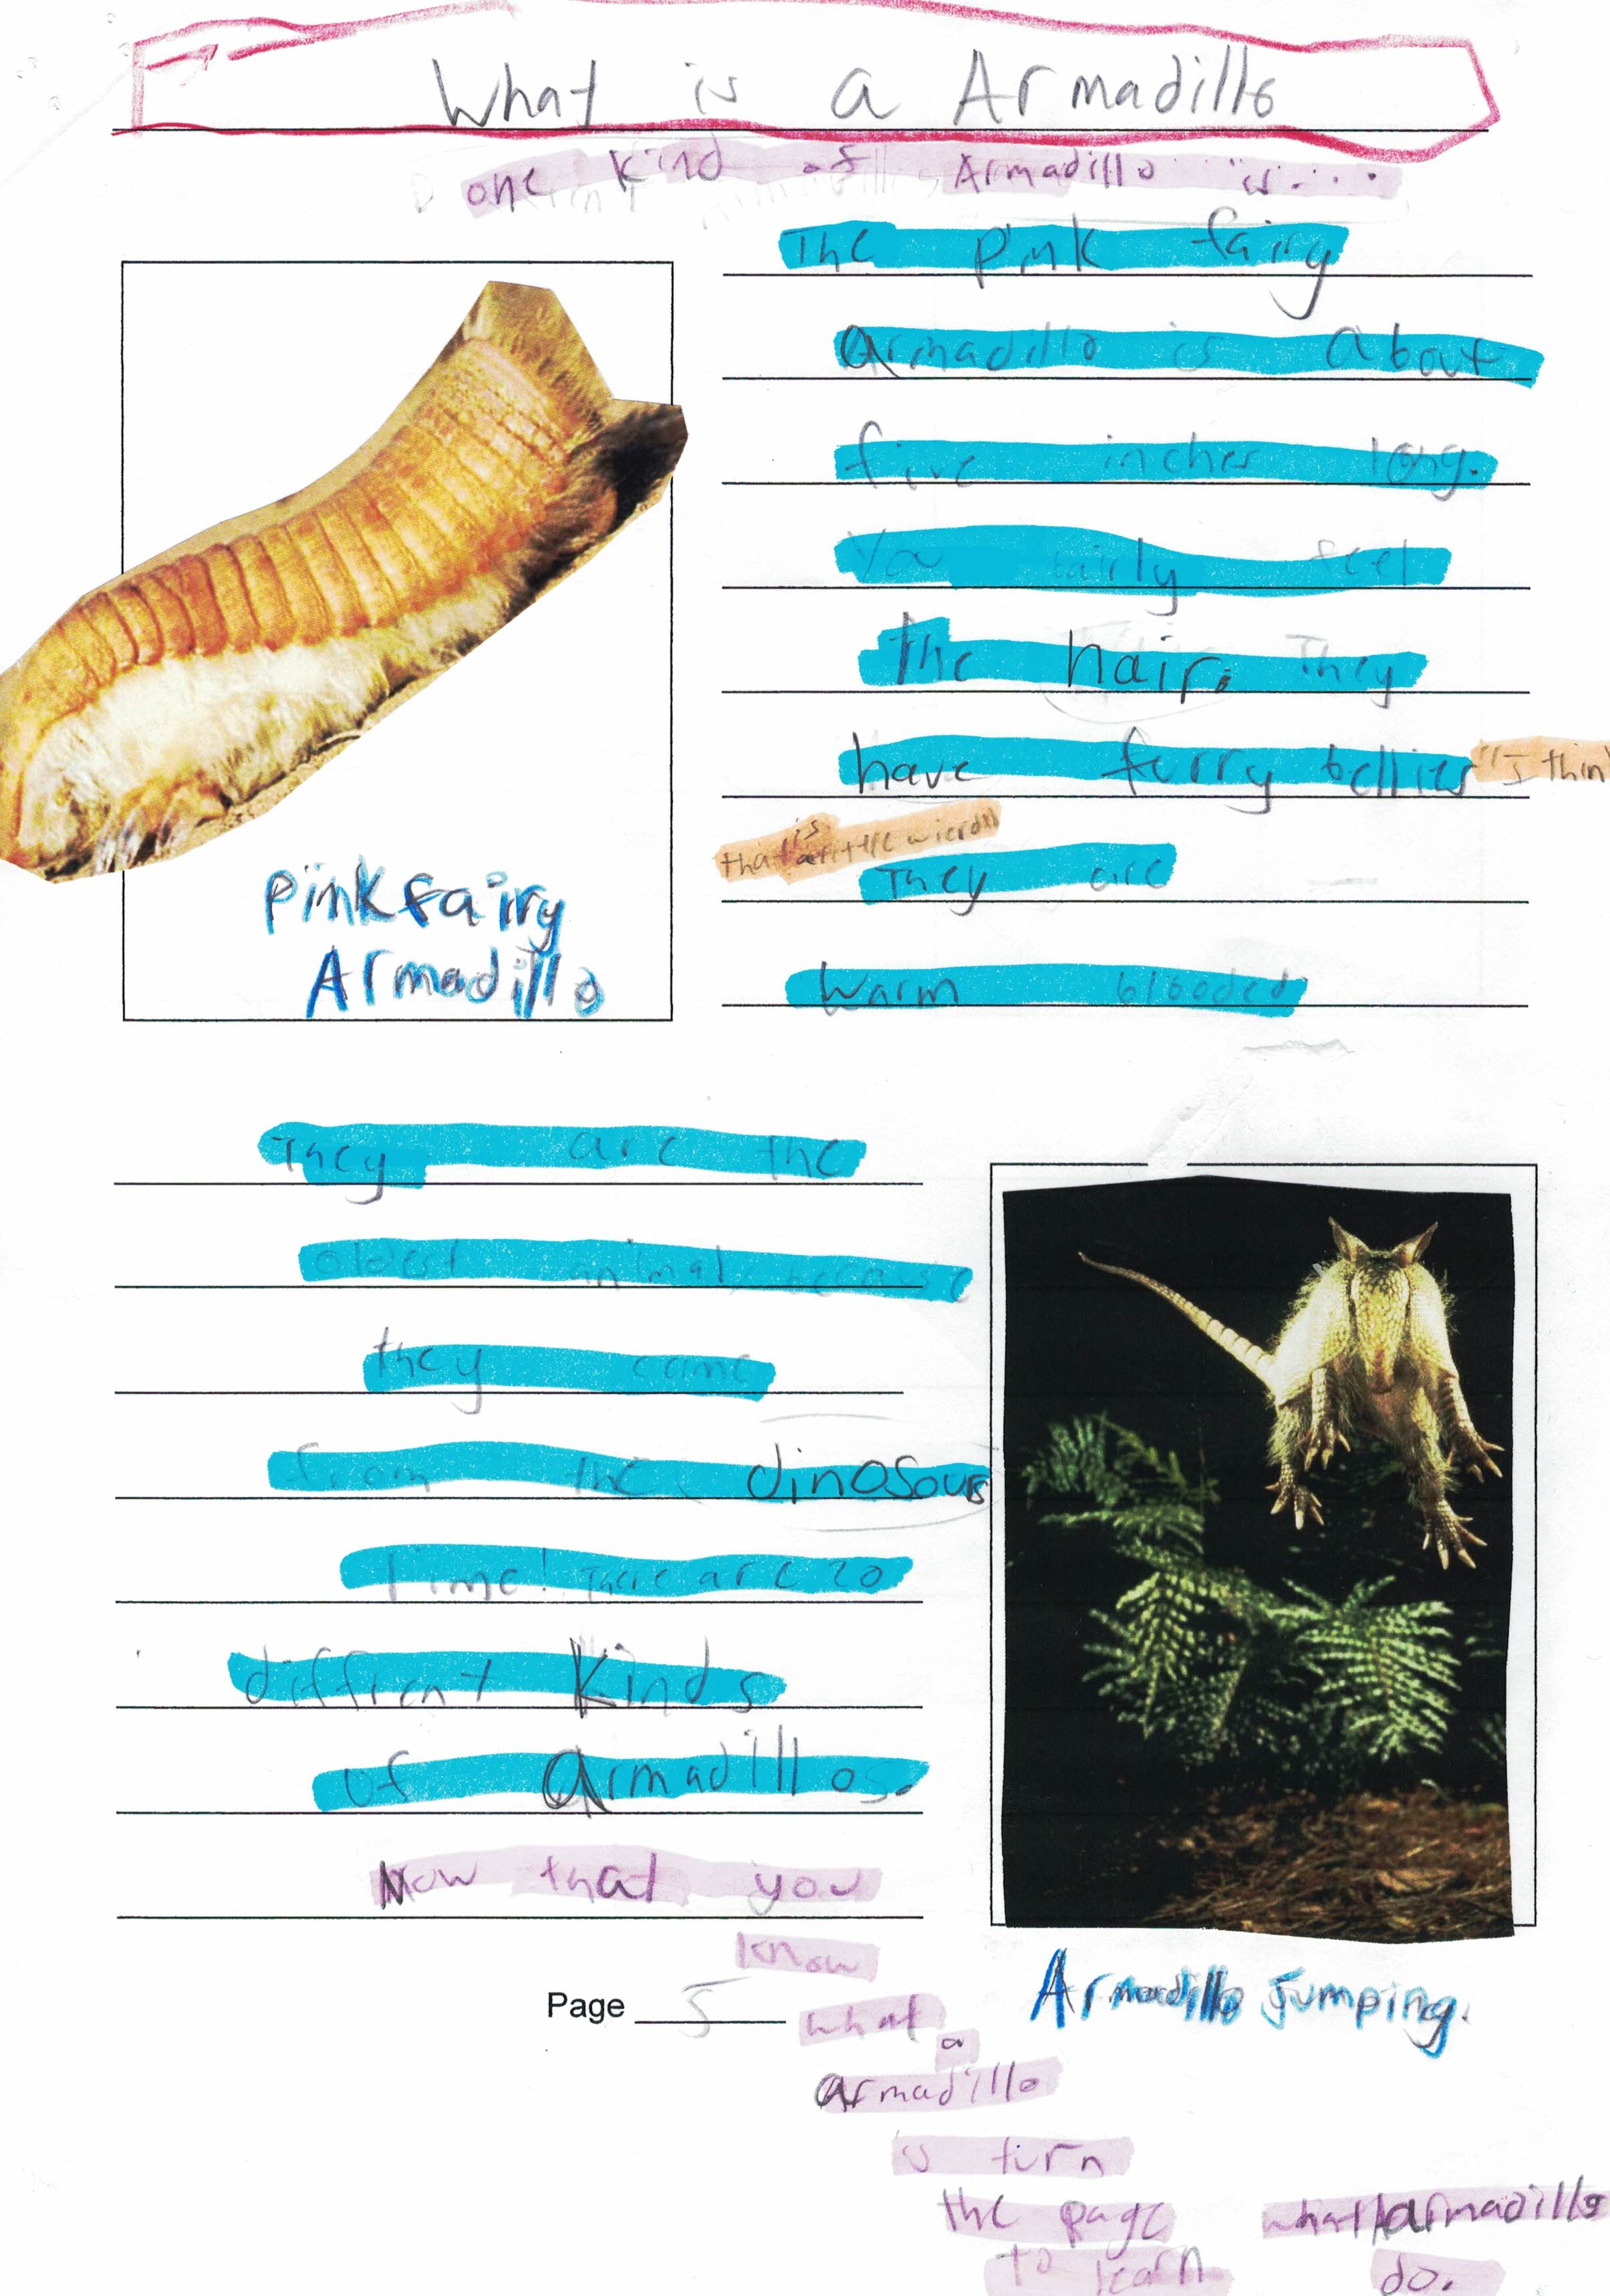 What is a Armadillo
one kind of Armadillo is....
The pink fairy
armadillo is about
five inches long.
You fairly feel
the hair. They
have furry bellies "I thin
that is a little wierd"
They are
warm blooded
pink fairy
Armadillo
They are the
oldest animals because
they came
from the dinosours
time! There are 20
diffrent kinds
of armadillos.
Now that you
know
what
a
armadillo
is turn
the page
to learn
what armadillo
do.
Page 5
Armadillo jumping.